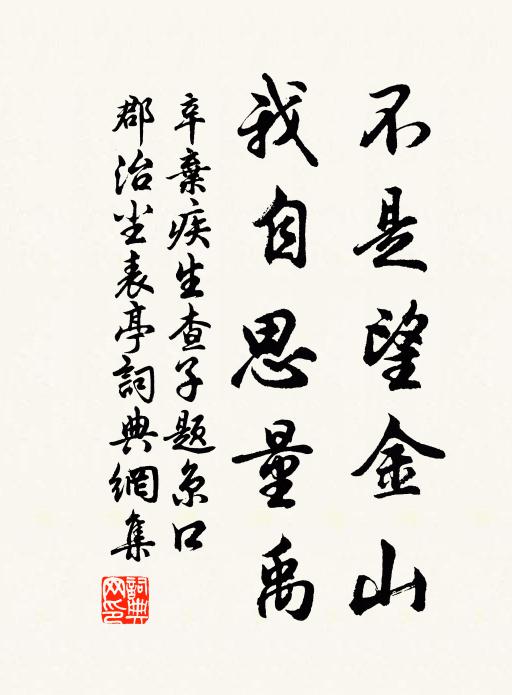 不是望金山
我自思量禹
辛棄疾生查子題京口
郡治尘表亭詞典網集
詞典网印